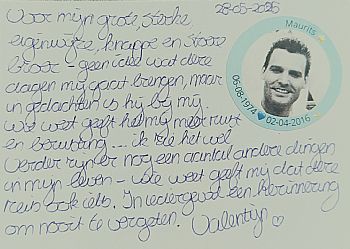 28-05-2025
Voor mijn grote, sterke,
eigenwijze, knappe en stoere
broer - geen idee wat deze
dagen mij gaat brengen, maar
in gedachten is hij bij mij.
Wie weet geeft het mij meer rust
en berusting... ik zie het wel
Verder zijn er nog een aantal andere dingen
in mijn leven - wie weet geeft mij dat deze
reis ook iets. In iedergeval een herinnering
om nooit te vergeten. Valentijn ♡
Maurits
06-08-1974 02-04-2016